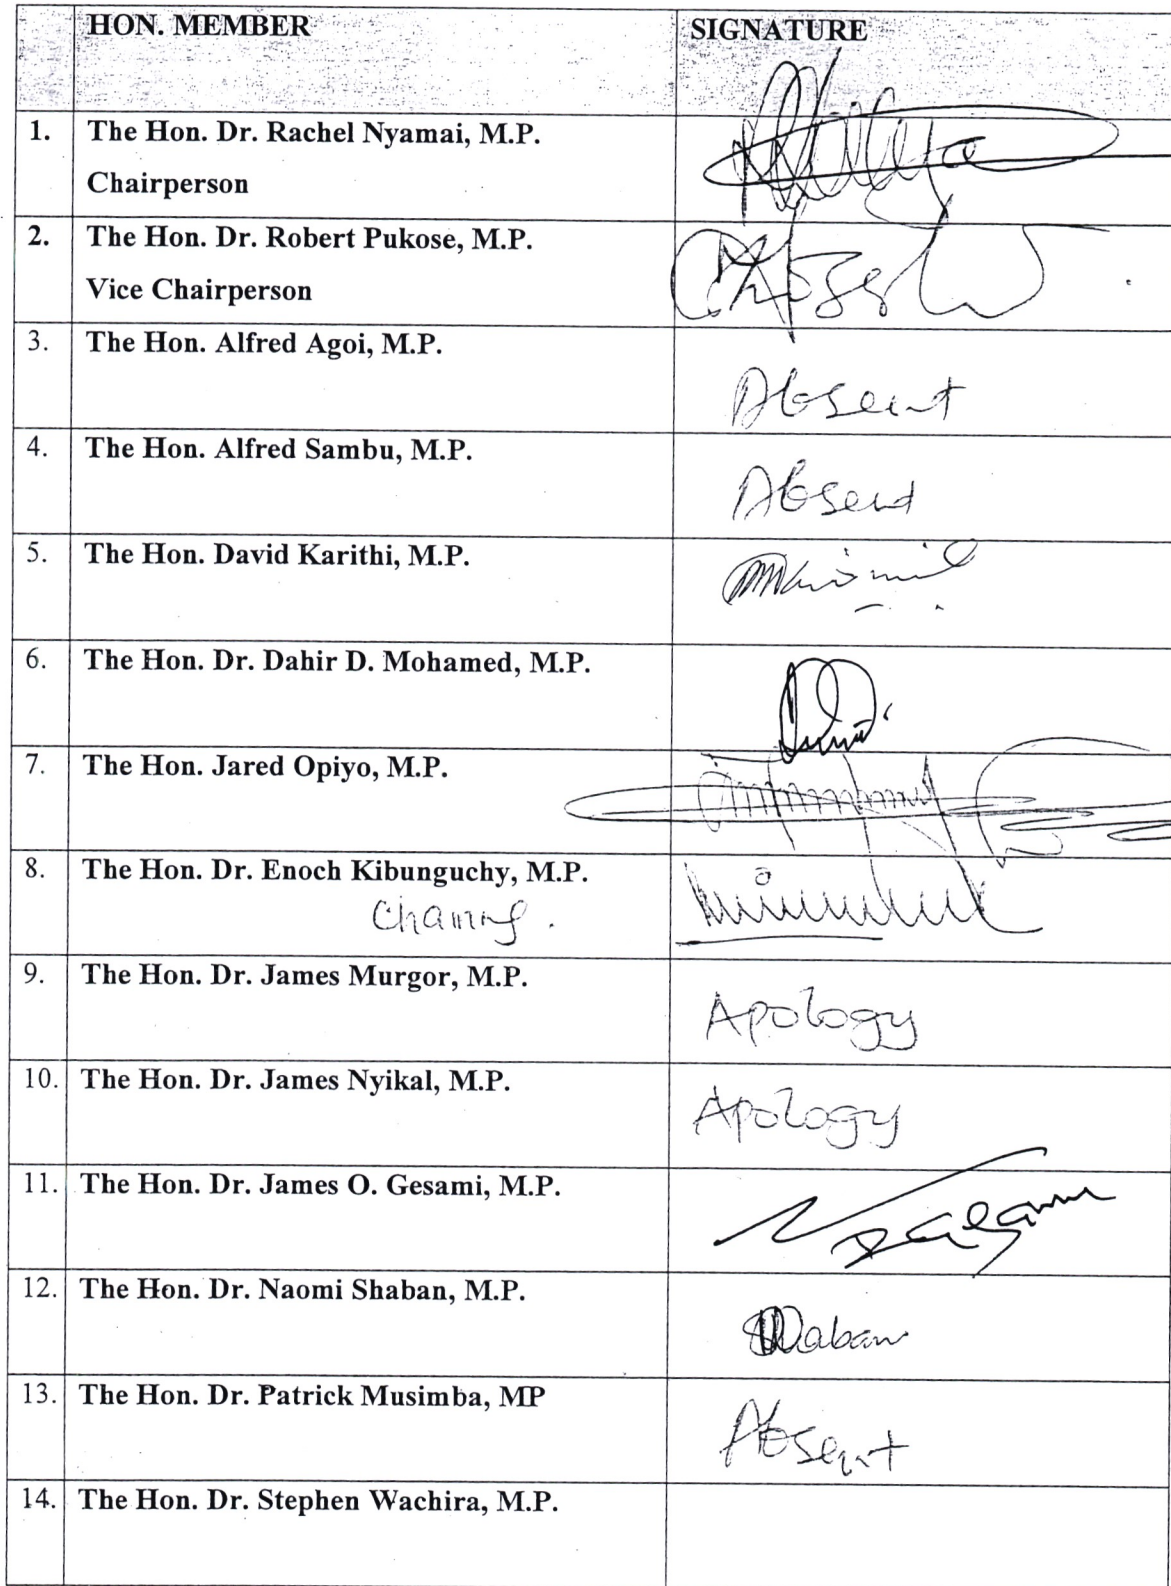 HON. MEMBER SIGNATURE
1. The Hon. Dr. Rachel Nyamai, M.P.
Chairperson
2. The Hon. Dr. Robert Pukose, M.P.
Vice Chairperson
3. The Hon. Alfred Agoi, M.P.
Absent
4. The Hon. Alfred Sambu, M.P.
Absent
5. The Hon. David Karithi, M.P.
6. The Hon. Dr. Dahir D. Mohamed, M.P.
7. The Hon. Jared Opiyo, M.P.
8. The Hon. Dr. Enoch Kibunguchy, M.P.
9. The Hon. Dr. James Murgor, M.P.
Apology
10. The Hon. Dr. James Nyikal, M.P.
Apology
11. The Hon. Dr. James O. Gesami, M.P.
12. The Hon. Dr. Naomi Shaban, M.P.
13. The Hon. Dr. Patrick Musimba, MP
Absent
14. The Hon. Dr. Stephen Wachira, M.P.